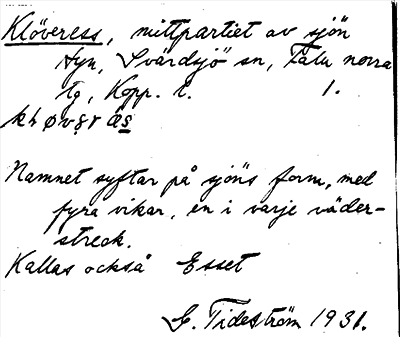 Klöveress, mittpartiet av sjön
Hyn, Svärdsjö sn, Falu norra
tg, Kopp. l. 1.
Namnet syftar på sjöns form, med
fyra vikar, en i varje väder-
streck.
Kallas också Esset
G. Tideström 1931.